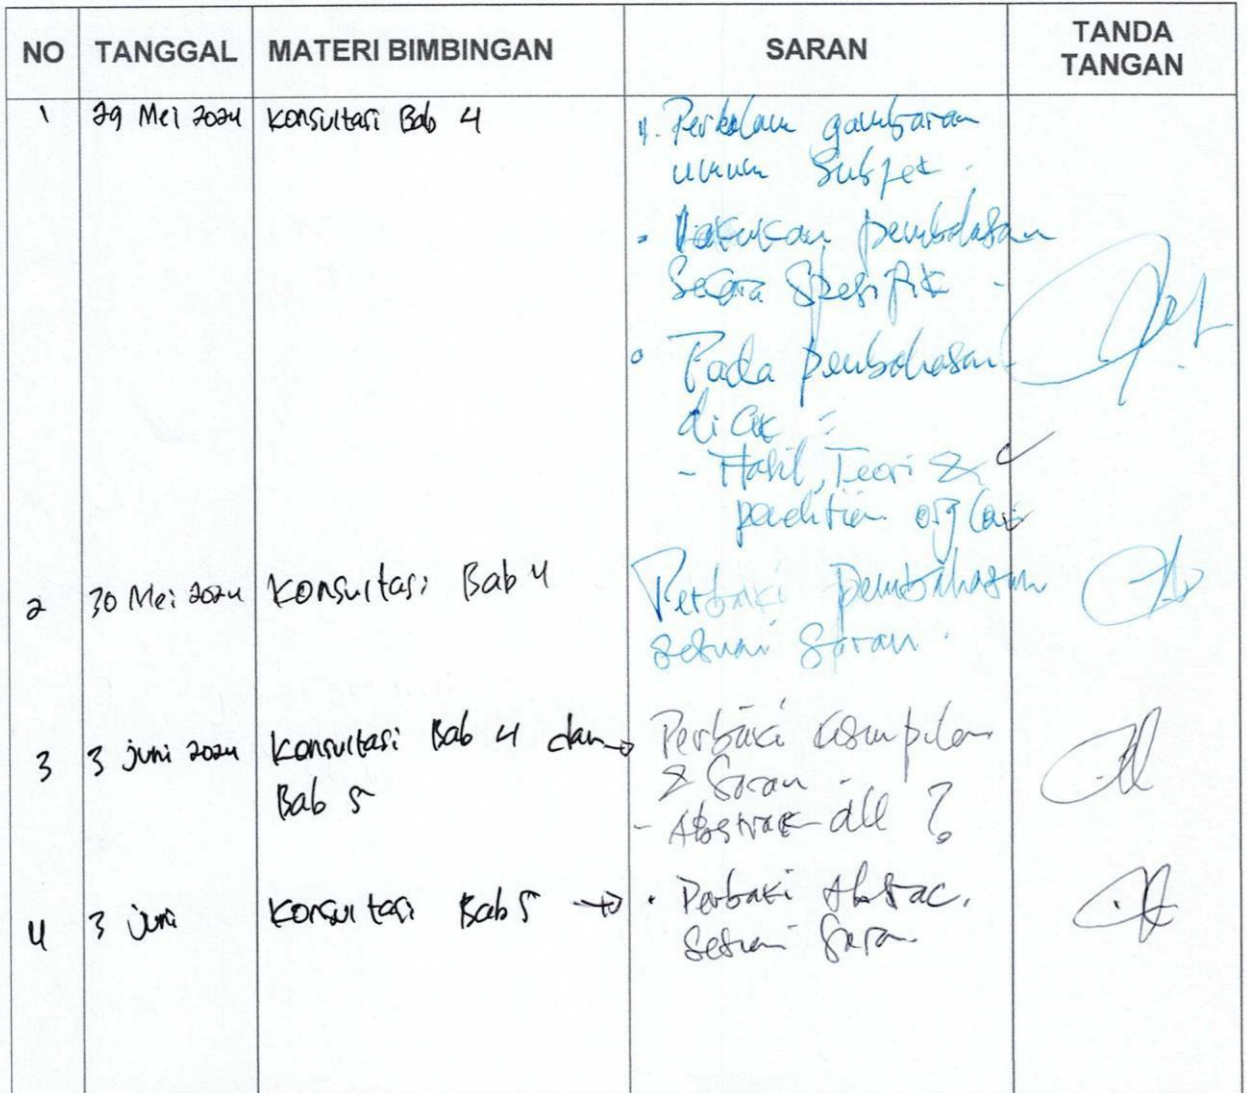 NO TANGGAL MATERI BIMBINGAN SARAN TANDA TANGAN
1 29 Mei 2024 Konsultasi Bab 4
gambaran
umum Subjek.
• Lakukan pembahasan
Secara Spesifik -
• Pada pembahasan
- Hasil, Teori &
2 30 Mei 2024 Konsultasi Bab 4
Perbaiki pembahasan
sesuai Saran.
3 3 juni 2024 Konsultasi Bab 4 dan →
Bab 5
Perbaiki kesimpulan
& Saran -
- Abstrak dll ?
4 3 juni Konsultasi Bab 5 →
• Perbaiki Abstrac.
sesuai Saran